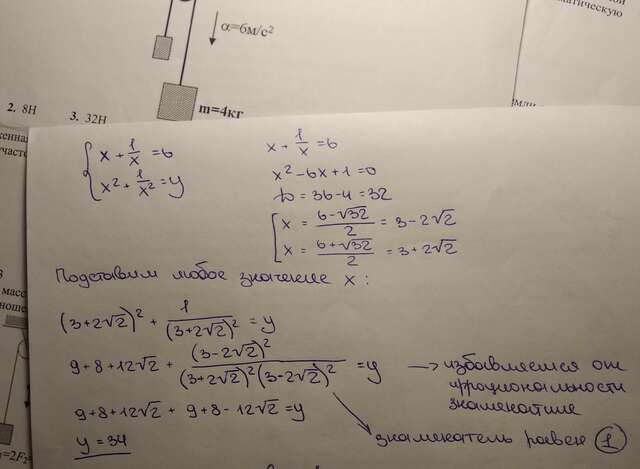 матическую
α=6м/с²
m=4кг
2. 8Н 3. 32Н
{ x + 1/x = 6
x² + 1/x² = y
x + 1/x = 6
x² - 6x + 1 = 0
D = 36 - 4 = 32
[ x = (6 - √32)/2 = 3 - 2√2
x = (6 + √32)/2 = 3 + 2√2
Подставим любое значение x:
(3 + 2√2)² + 1/(3 + 2√2)² = y
9 + 8 + 12√2 + (3 - 2√2)²/((3 + 2√2)²(3 - 2√2)²) = y → избавляемся от
иррациональности
знаменателе
9 + 8 + 12√2 + 9 + 8 - 12√2 = y
y = 34
знаменатель равен 1